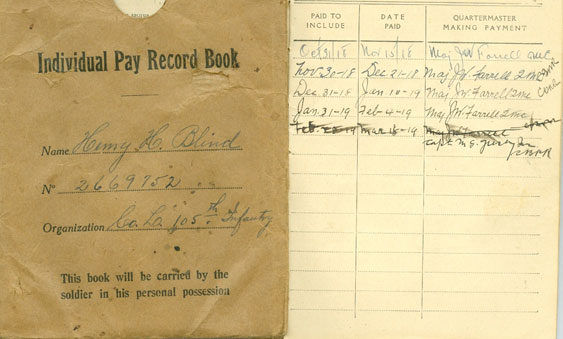 Individual Pay Record Book
Name Henry H. Blind
No 2669752
Organization Co. L. 105th Infantry
This book will be carried by the
soldier in his personal possession
PAID TO INCLUDE DATE PAID QUARTERMASTER MAKING PAYMENT
Oct 31/18 Nov 15/18 Maj JW Farrell QMC
Nov 30-18 Dec 21-18 Maj JW Farrell QMC
Dec 31-18 Jan 14-19 Maj JW Farrell QMC
Jan 31-19 Feb 4-19 Maj JW Farrell QMC
Feb 19 Mar 15-19 Maj JW Farrell
Capt M.G.